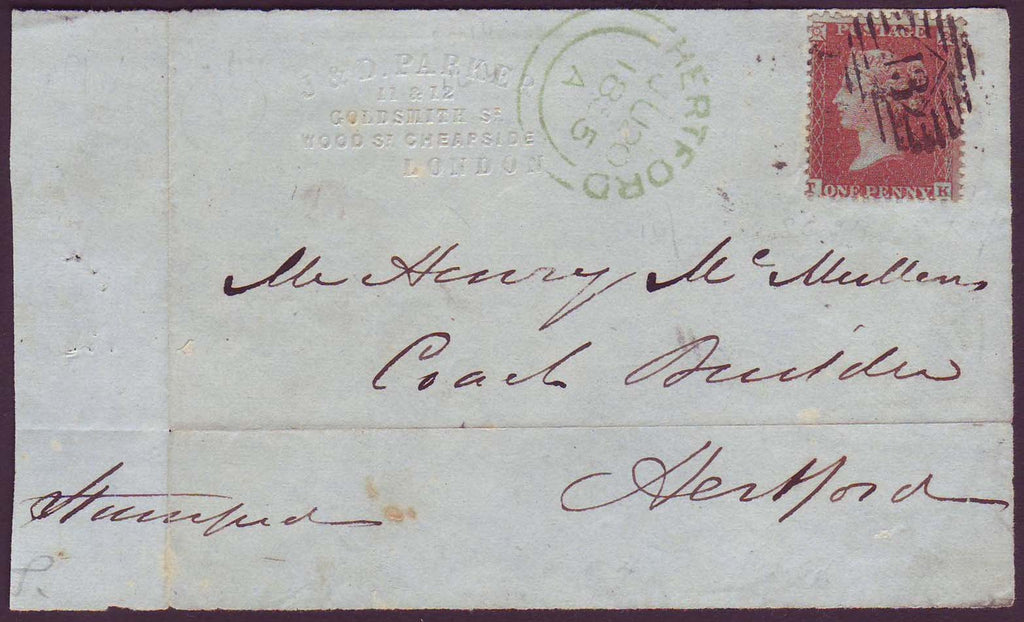 & D. PARKER
11 & 12
GOLDSMITH ST
WOOD ST CHEAPSIDE
LONDON
HERTFORD
JU 20
1855
A
POSTAGE
ONE PENNY
K
Mr Henry McMullens
Coach Builder
Hertford
Stamped